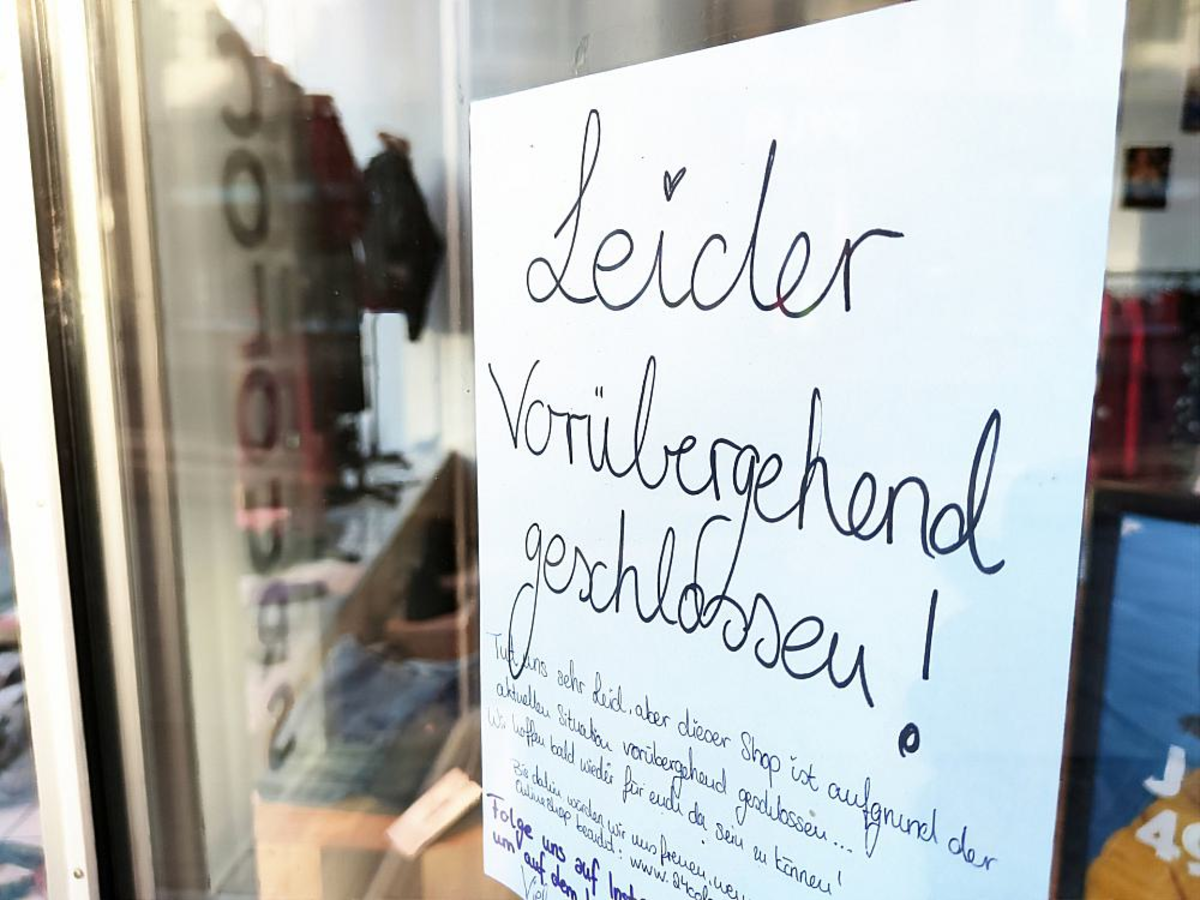 Leider
Vorübergehend
geschlossen!
Tut uns sehr Leid, aber dieser Shop ist aufgrund der
aktuellen Situation vorübergehend geschlossen...
Wir hoffen bald wieder für euch da sein zu können!
Bis dahin würden wir uns freuen, wenn
Onlineshop besucht: www.24colo
Folge uns auf Inst
um auf dem
Viel
J
49